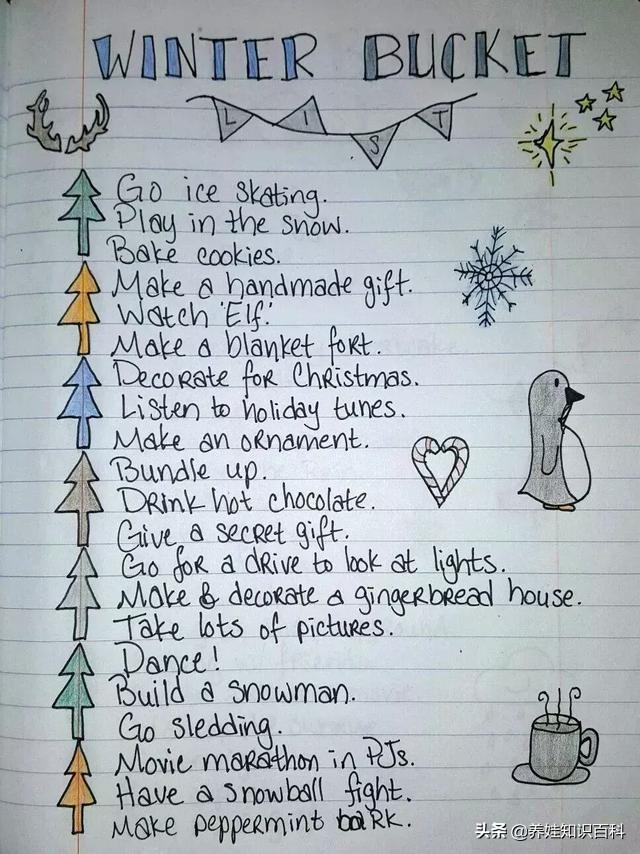 WINTER BUCKET
LIST
Go ice skating.
Play in the snow.
Bake cookies.
Make a handmade gift.
Watch 'Elf.'
Make a blanket fort.
Decorate for Christmas.
Listen to holiday tunes.
Make an ornament.
Bundle up.
Drink hot chocolate.
Give a secret gift.
Go for a drive to look at lights.
Make & decorate a gingerbread house.
Take lots of pictures.
Dance!
Build a snowman.
Go sledding.
Movie marathon in PJs.
Have a snowball fight.
Make peppermint bark.
头条 @养娃知识百科